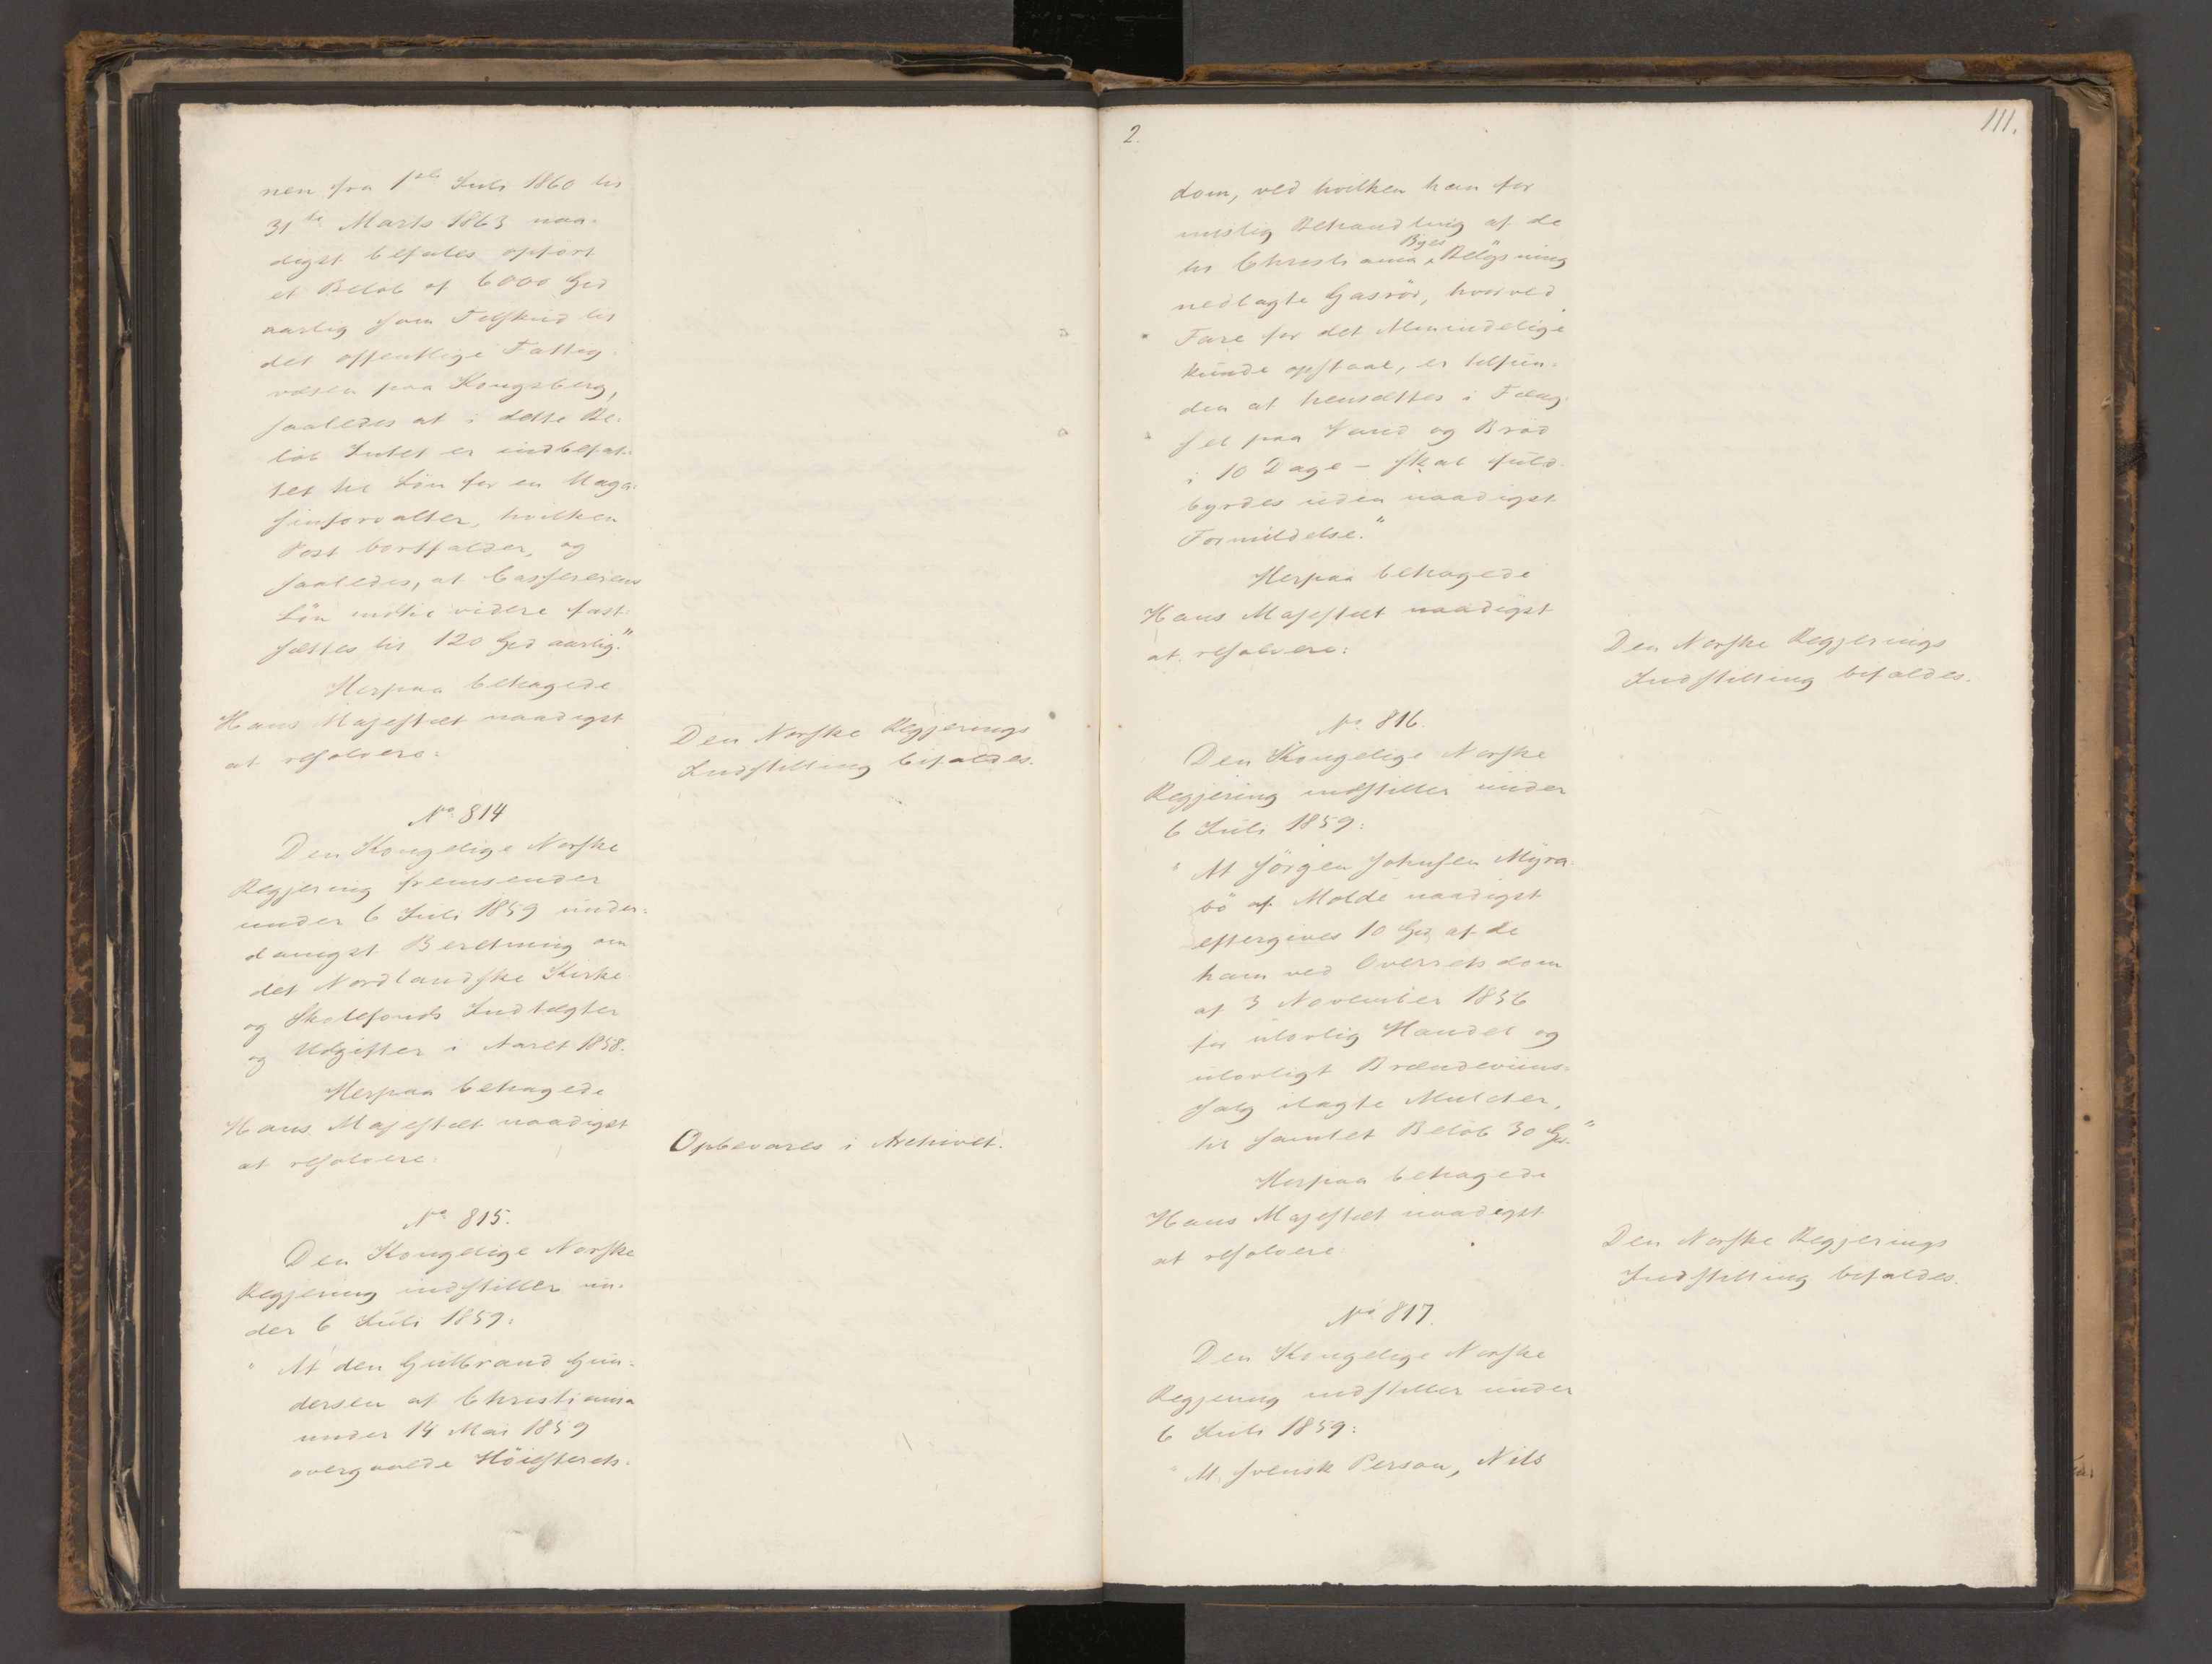 nen fra 1ste Juli 1860 til
31te Marts 1863 naa-
digst befales opført
et Beløb af 6000 Spd
aarlig som Tilskud til
det offentlige Fattig-
væsen paa Kongsberg,
saaledes at i dette Be-
løb Intet er indbefat-
tet til Løn for en Maga-
sinforvalter, hvilken
Post bortfalder, og
saaledes, at Cassererens
Løn indtil videre fast-
sættes til 120 Spd aarlig."
Herpaa behagede
Hans Majestæt naadigst
at resolvere:
Den Norske Regjerings
Indstilling bifaldes.
No 814
Den Kongelige Norske
Regjering fremsender
under 6 Juli 1859 under-
danigst Beretning om
det Nordlandske Kirke-
og Skolefonds Indtægter
og Udgifter i Aaret 1858.
Herpaa behagede
Hans Majestæt naadigst
at resolvere:
Opbevares i Archivet.
No 815.
Den Kongelige Norske
Regjering indstiller un-
der 6 Juli 1859:
" At den Gulbrand Gun-
dersen af Christiania
under 14 Mai 1859
overgaaede Høiesterets-
2.
111.
dom, ved hvilken han for
mislig Behandling af de
til Christiania Byes Belysning
nedlagte Gasrør, hvorved
Fare for det Almindelige
kunde opstaae, er tilfun-
den at hensættes i Fæng-
sel paa Vand og Brød
i 10 Dage – skal fuld-
byrdes uden naadigst
Formildelse."
Herpaa behagede
Hans Majestæt naadigst
at resolvere:
Den Norske Regjerings
Indstilling bifaldes.
No 816.
Den Kongelige Norske
Regjering indstiller under
6 Juli 1859:
" At Jørgen Johnsen Myra-
bø af Molde naadigst
eftergives 10 Spd af de
ham ved Overretsdom
af 3 November 1856
for ulovlig Handel og
ulovligt Brændeviins-
salg ilagte Mulcter,
til samlet Beløb 30 Spd."
Herpaa behagede
Hans Majestæt naadigst
at resolvere:
Den Norske Regjerings
Indstilling bifaldes.
No 817.
Den Kongelige Norske
Regjering indstiller under
6 Juli 1859:
" At svensk Person, Nils